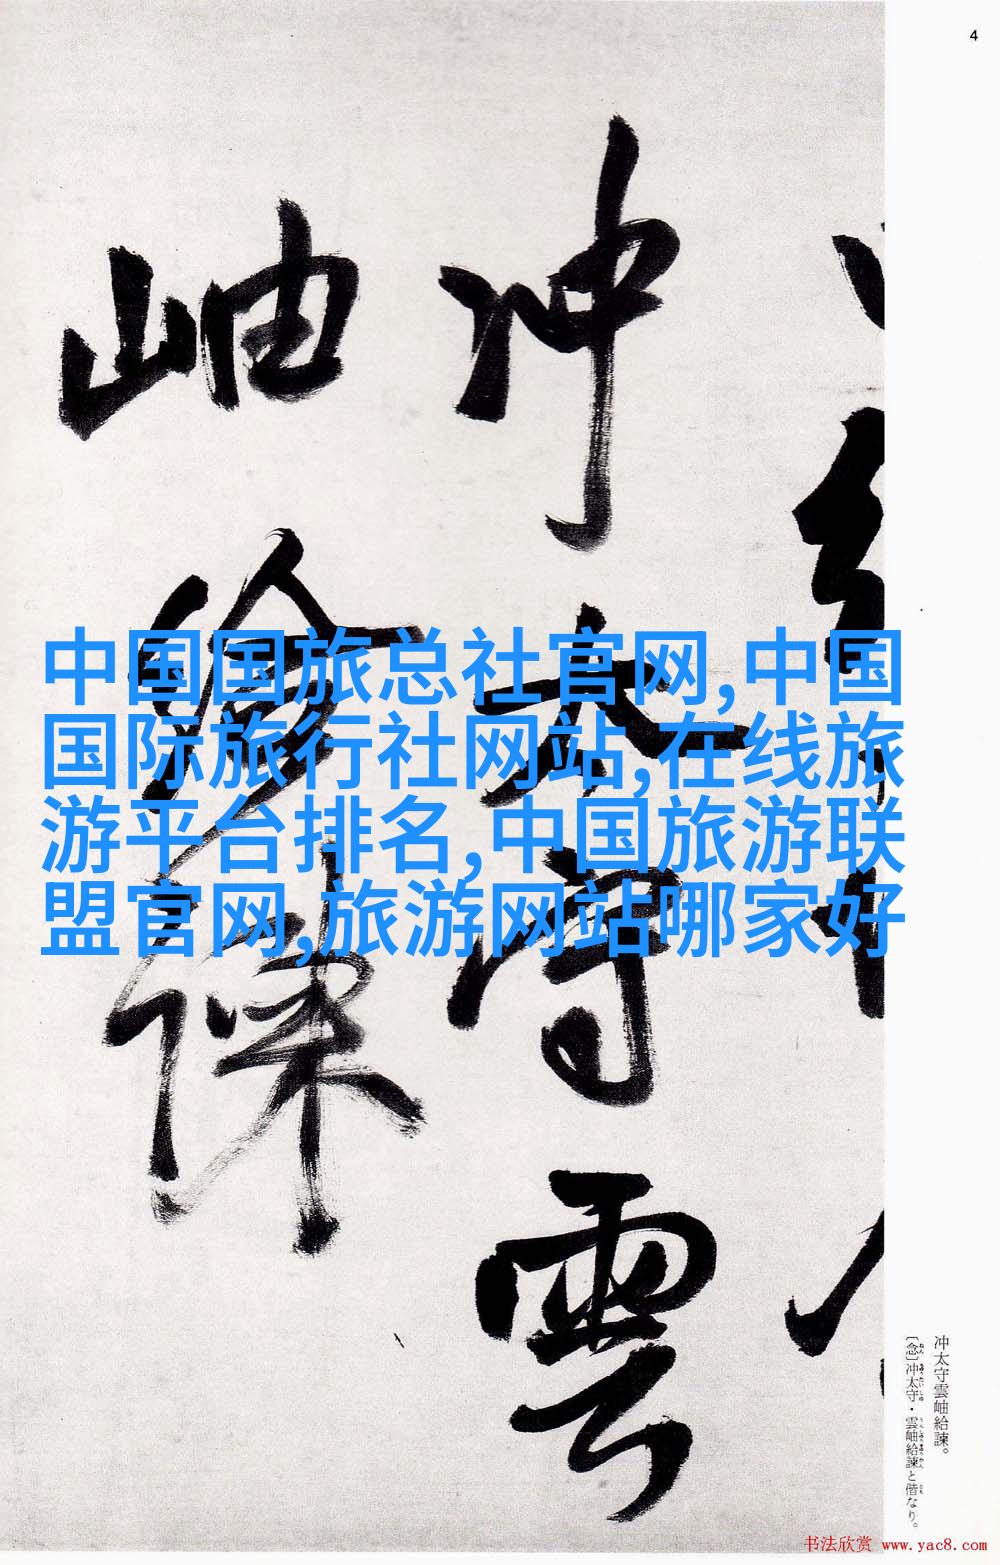 4
冲太守雲
岫給諫
中国国旅总社官网,中国
国际旅行社网站,在线旅
游平台排名,中国旅游联
盟官网,旅游网站哪家好
冲太守雲岫給諫。
〔念〕冲太守・雲岫給諫と偕なり。
书法欣赏 www.yac8.com